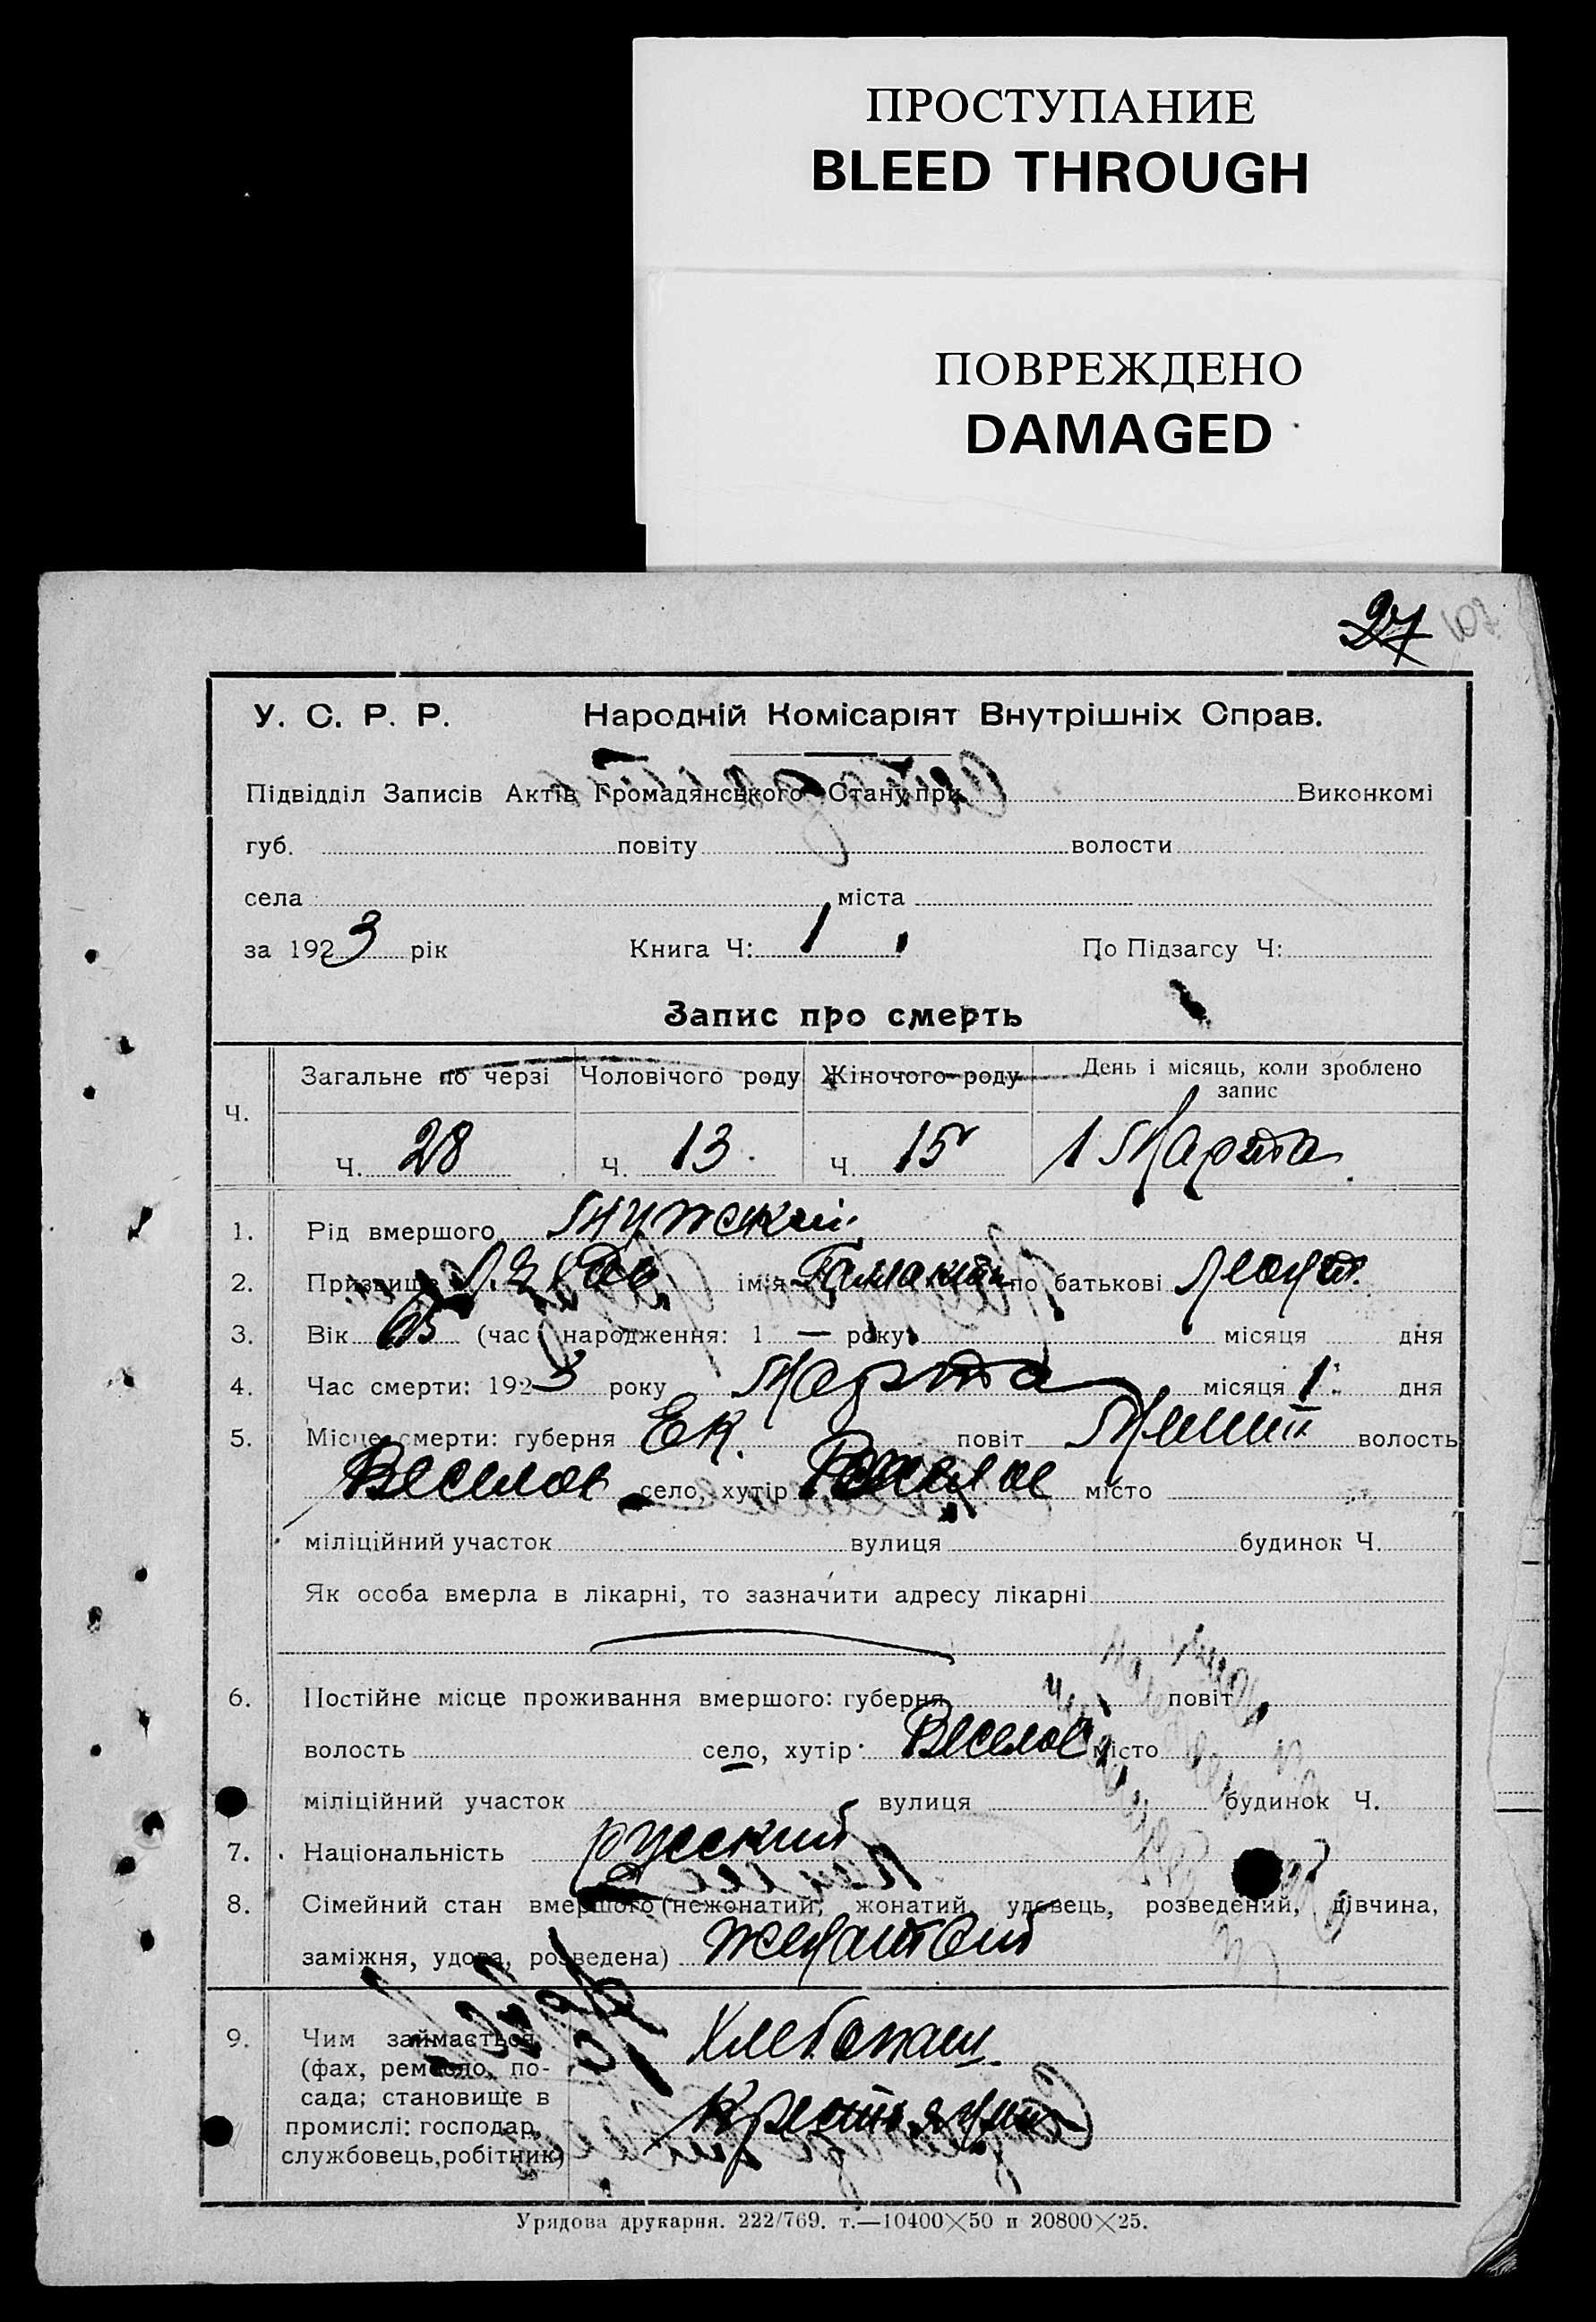 ПРОСТУПАНИЕ
BLEED THROUGH
ПОВРЕЖДЕНО
DAMAGED
27 107
У. С. Р. Р. Народній Комісаріят Внутрішніх Справ.
Підвідділ Записів Актів Громадянського Стану при Виконкомі
губ. повіту волости
села міста
за 1923 рік Книга Ч: 1 По Підзагсу Ч:
Запис про смерть
Ч. Загальне по черзі Чоловічого роду Жіночого роду День і місяць, коли зроблено запис
Ч. 28 Ч. 13 Ч. 15 1 Марта
1. Рід вмершого Мужской
2. Призвище ім'я по батькові Леонт.
3. Вік 65 (час народження: 1 — року місяця дня
4. Час смерти: 1923 року Марта місяця 1 дня
5. Місце смерти: губерня Ек. повіт волость
Веселое село, хутір Веселое місто
міліційний участок вулиця будинок Ч.
Як особа вмерла в лікарні, то зазначити адресу лікарні
6. Постійне місце проживання вмершого: губерня повіт
волость село, хутір Веселое місто
міліційний участок вулиця будинок Ч.
7. Національність русский
8. Сімейний стан вмершого (нежонатий, жонатий, удовець, розведений, дівчина,
заміжня, удова, розведена) женатый
9. Чим займається Хлебопаш.
(фах, ремесло, по-
сада; становище в крестьянин
промислі: господар,
службовець, робітник)
Урядова друкарня. 222/769. т.—10400×50 и 20800×25.